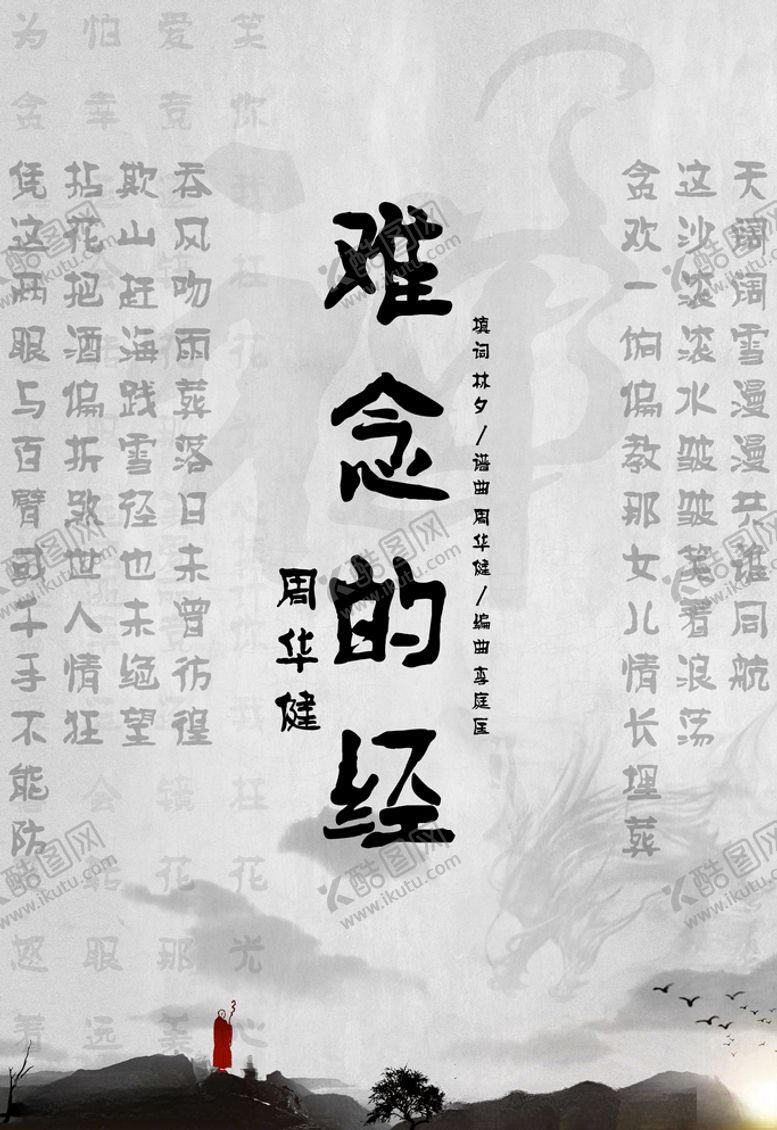 天阔阔雪漫漫共谁同航
这沙滚滚水皱皱笑着浪荡
贪欢一饷偏教那女儿情长埋葬
填词 林夕/谱曲 周华健/编曲 李庭匡
难念的经
周华健
笑你我枉花光心
吞风吻雨葬落日未曾彷徨
欺山赶海践雪径也未绝望
拈花把酒偏折煞世人情狂
凭这两眼与百臂或千手不能防
酷图网
www.ikutu.com